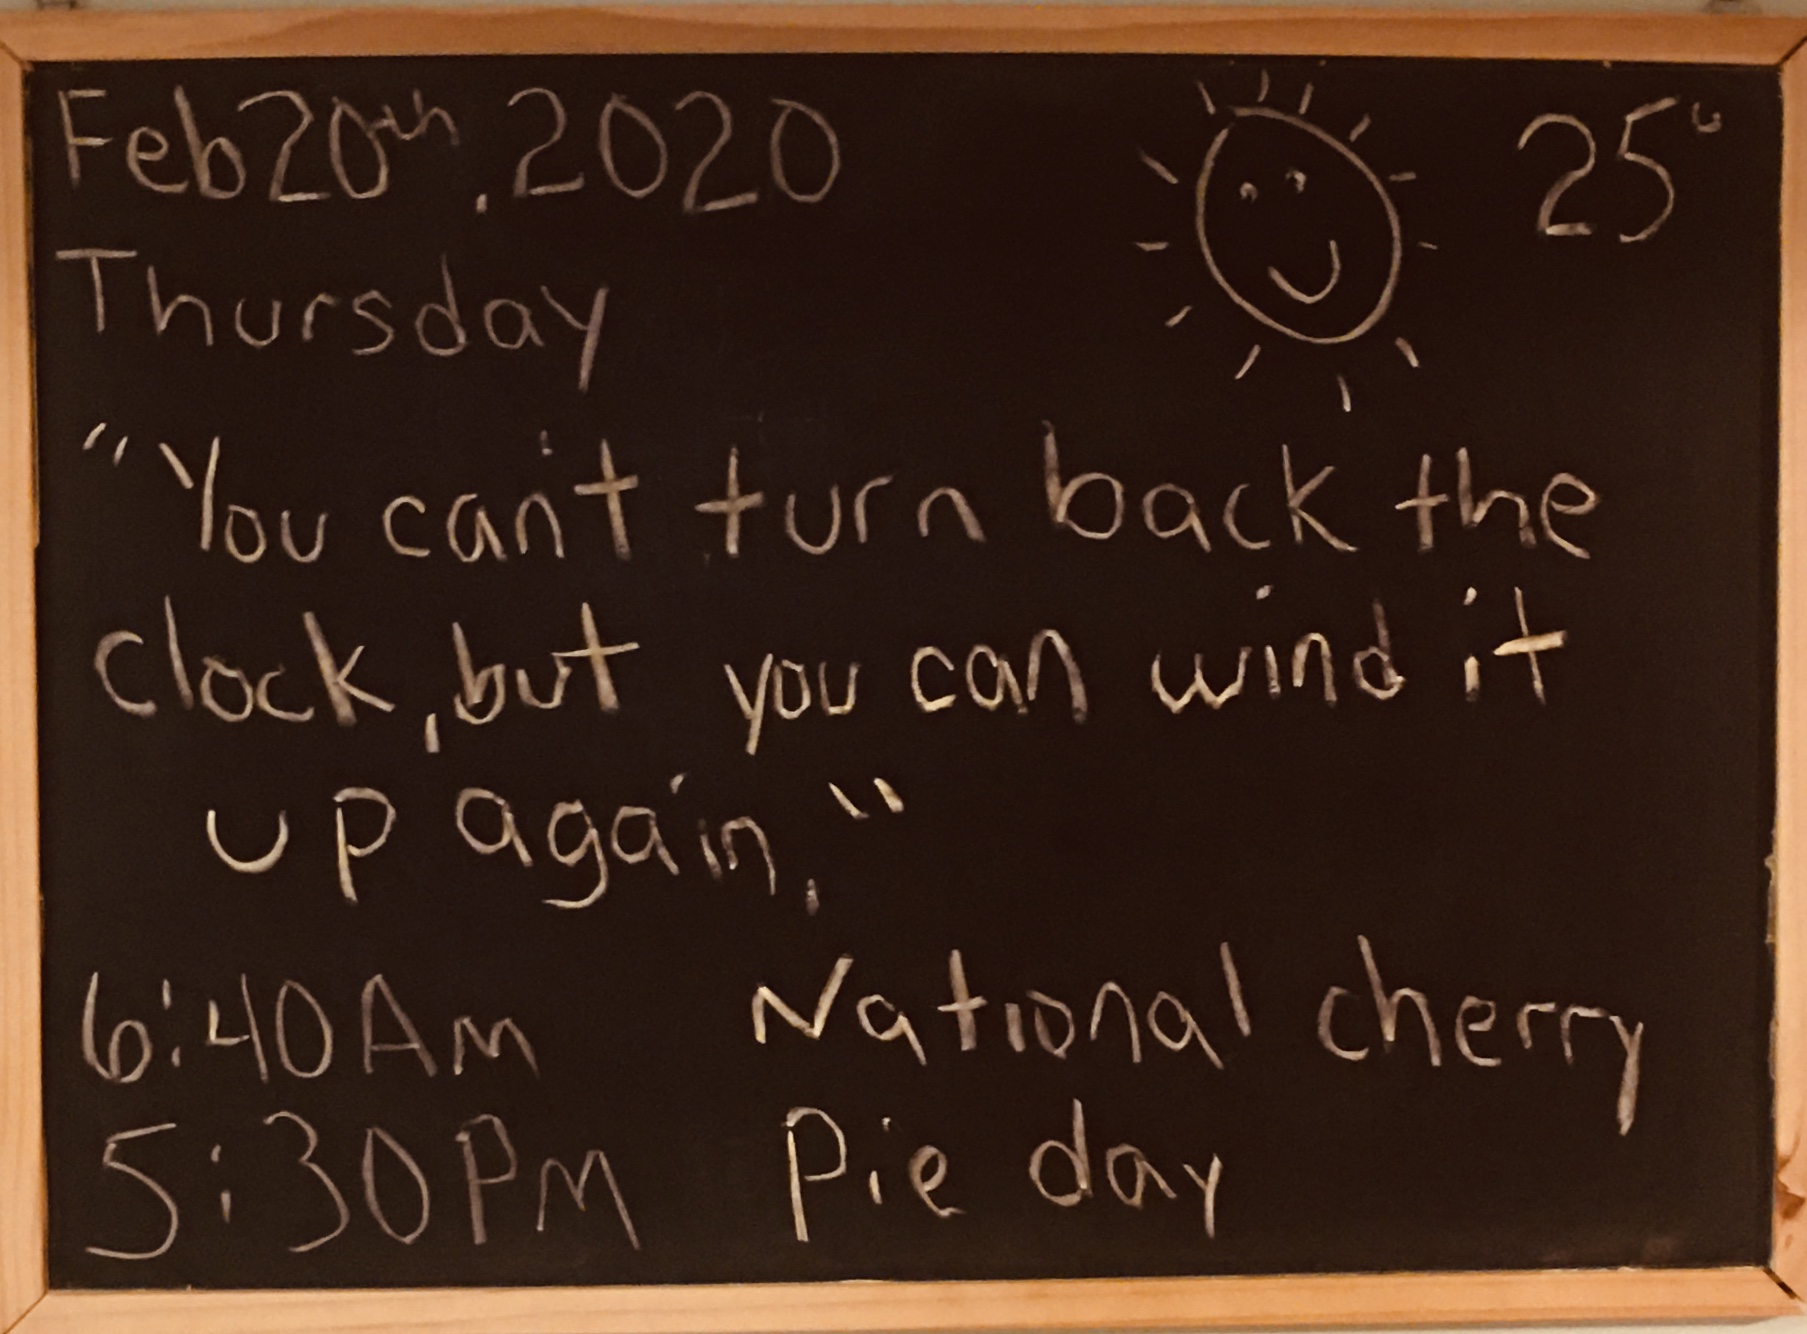 Feb 20th, 2020
25°
Thursday
"You can't turn back the
clock, but you can wind it
up again."
6:40 AM
National cherry
5:30 PM
Pie day